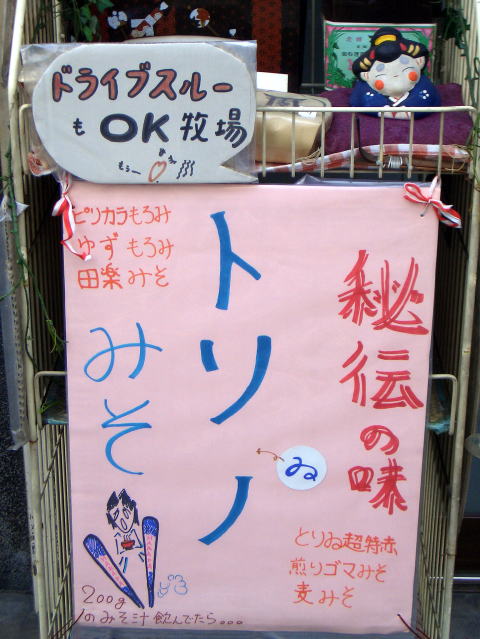 ドライブスルー
も OK 牧場
もぅー
秘伝の味
トリノ
ゐ
みそ
ピリカラもろみ
ゆずもろみ
田楽みそ
とりゐ超特赤
煎りゴマみそ
麦みそ
200g
のみそ汁飲んでたら...